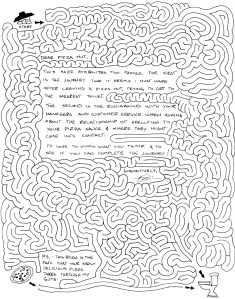 START
DEAR PIZZA HUT,
THIS MAZE SYMBOLIZES TWO THINGS. THE FIRST
IS THE JOURNEY THAT IT SEEMS I MUST HAVE
AFTER LEAVING A PIZZA HUT, TRYING TO GET TO
THE NEAREST TOILET.
THE SECOND IS THE RUNAROUND WITH YOUR
MANAGERS AND CUSTOMER SERVICE WHEN ASKING
ABOUT THE RELATIONSHIP OF
YOUR PIZZA SAUCE & WHERE THEY MIGHT
COME INTO CONTACT.
I'D LOVE TO KNOW WHAT YOU THINK & TO
SEE IF YOU CAN COMPLETE THE JOURNEY.
P.S. - THIS BELOW IS THE
PATH THAT YOUR GREAT
DELICIOUS PIZZA
TAKES THROUGH MY
GUTS!